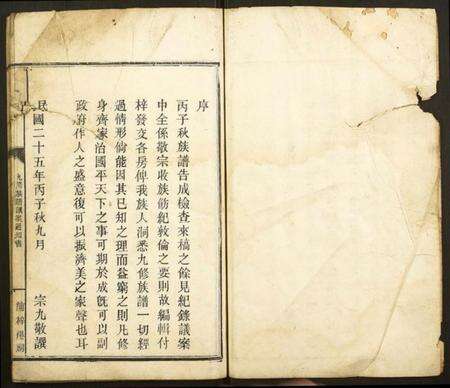 序
丙子秋族譜告成檢查來稿之餘見紀錄議案
中全係敬宗收族飭紀敦倫之要則故編輯付
梓發交各房俾我族人洞悉九修族譜一切經
過情形倘能因其已知之理而益窮之則凡修
身齊家治國平天下之事可期於成旣可以副
政府作人之盛意復可以振濟美之家聲也耳
民國二十五年丙子秋九月　宗九敬譔
序
九修族譜議案